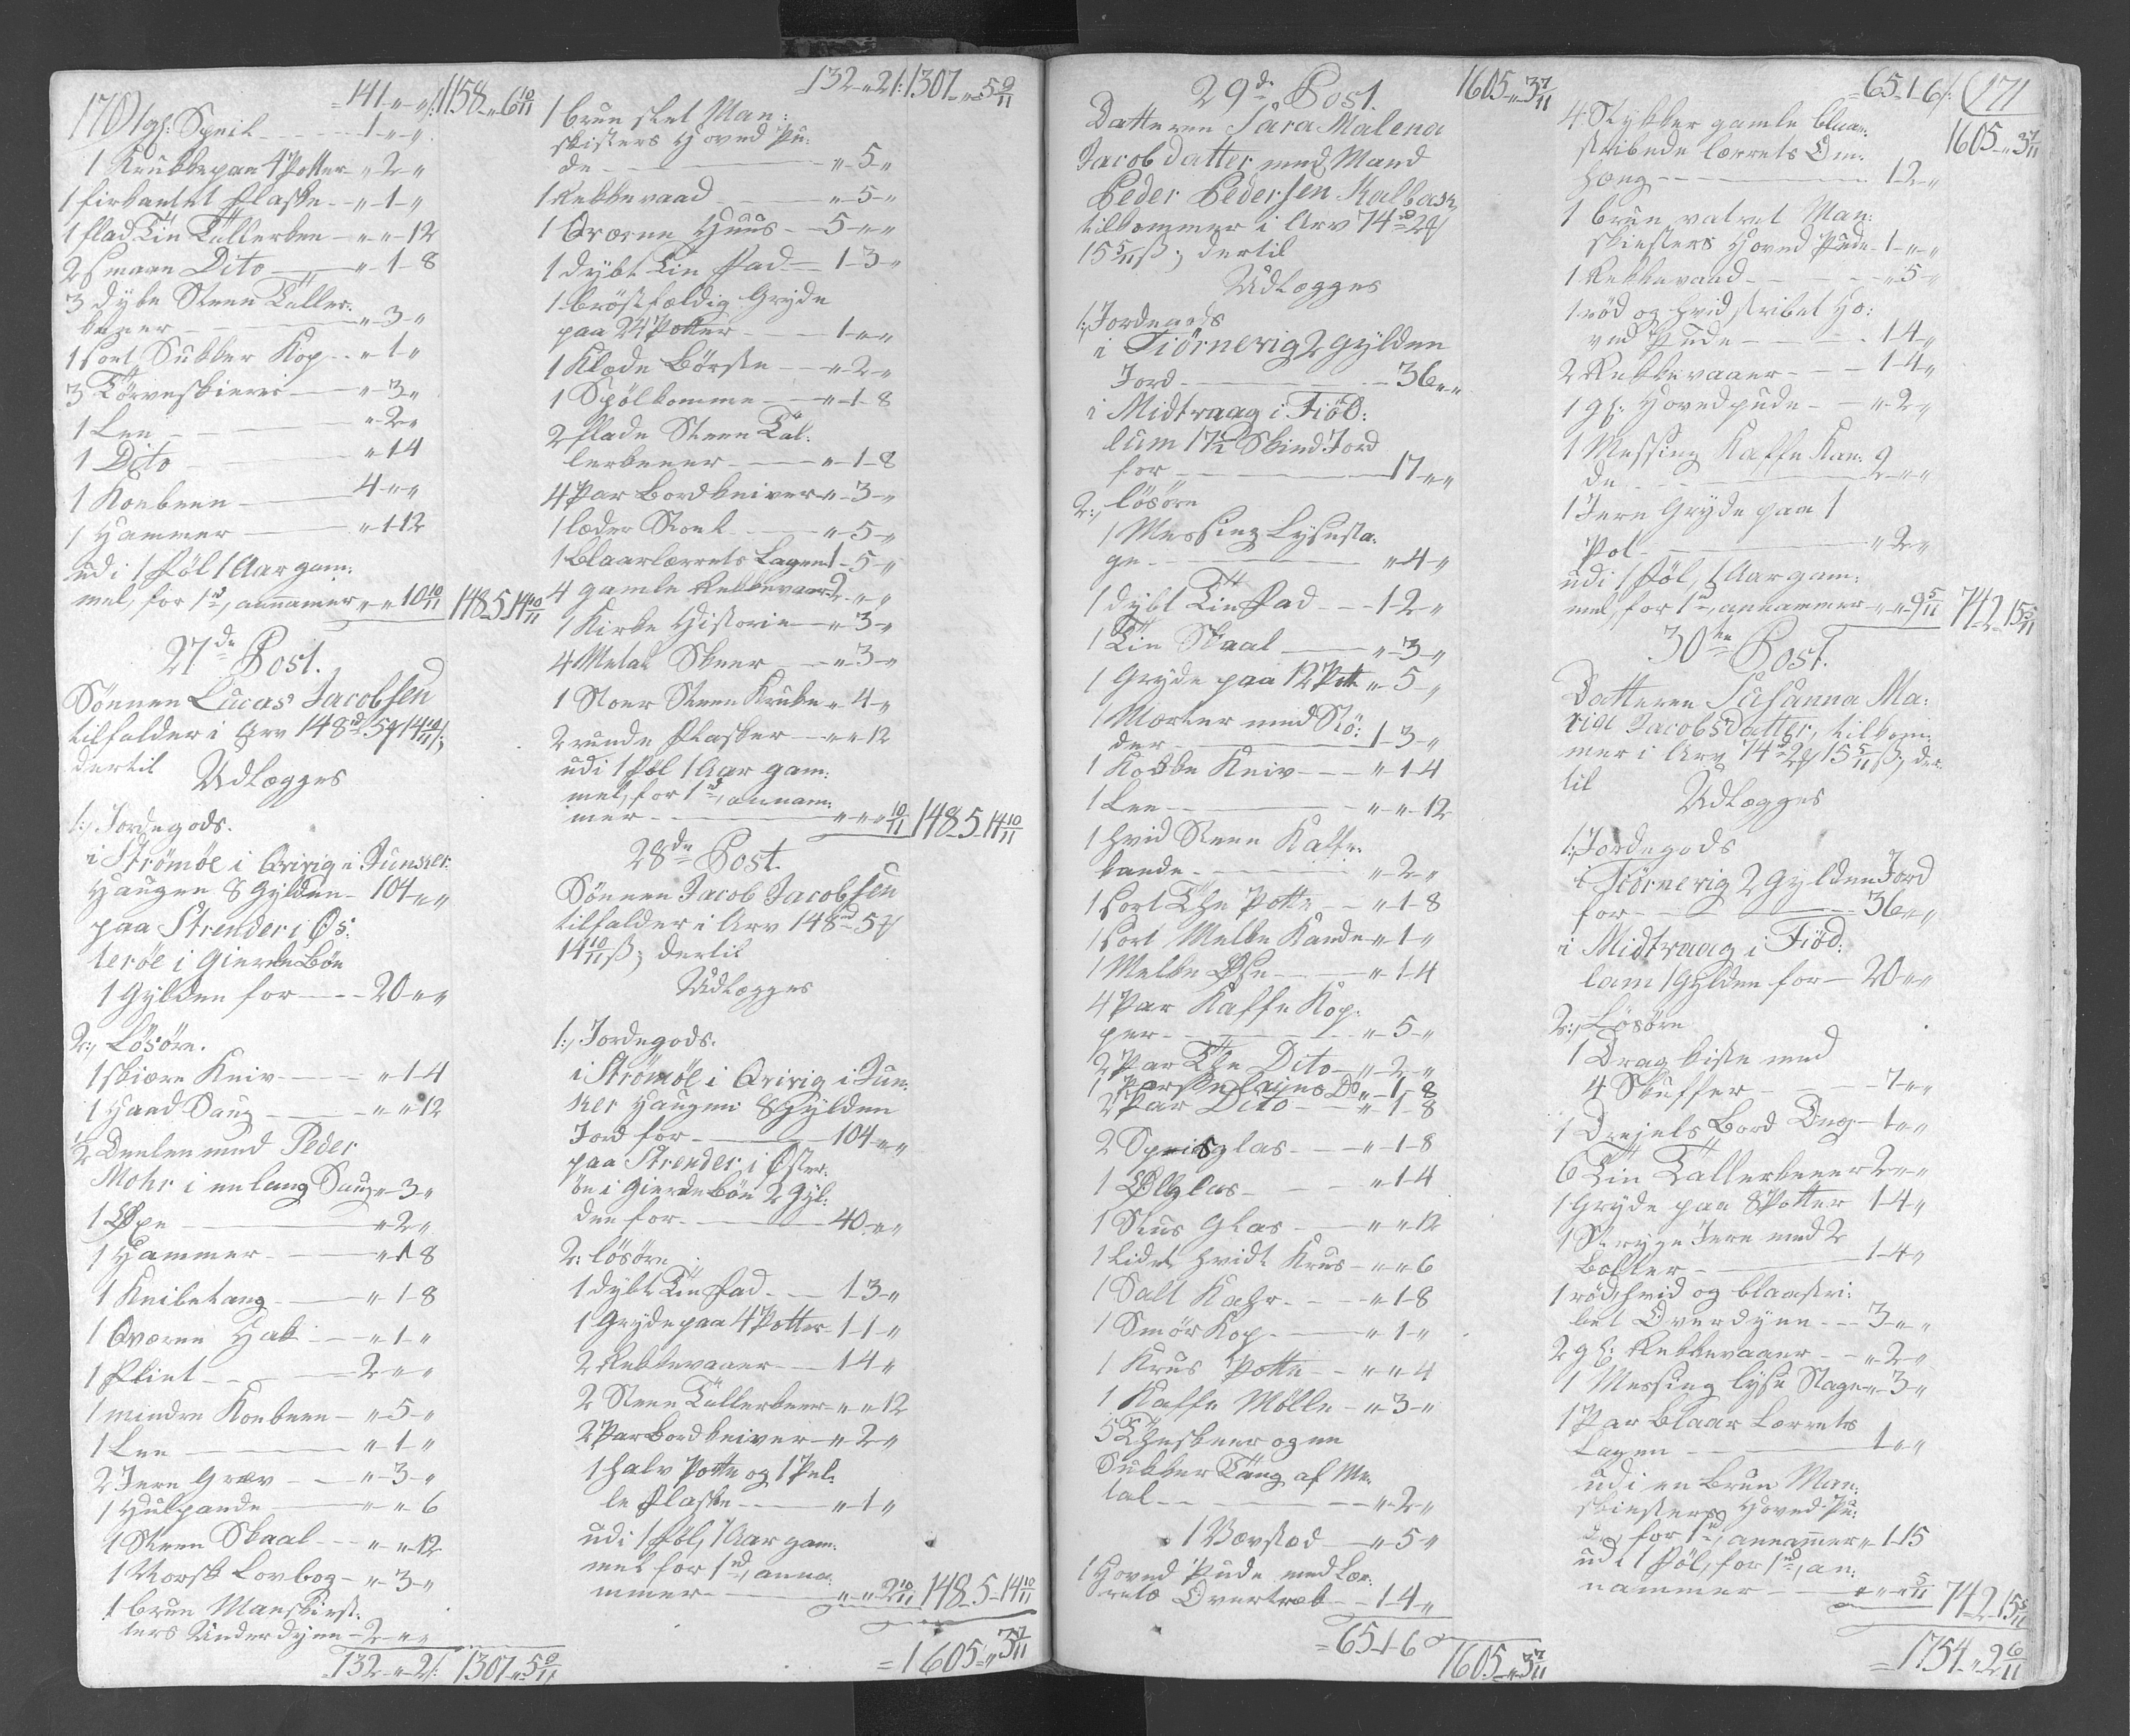 170
141 „ „ 1158 „ 6 10/11
1 gl: Speil 1 „ „
1 Krukke paa 4 Potter „ 2 „
1 firkantet Flaske „ 1 „
1 flad Tin Tallerken „ „ 12
2 smaae Dito „ 1 8
3 dybe Steen Taller:
kener „ 3 „
1 sort Sukker Kop „ 1 „
3 Törveskierer „ 3 „
1 Lee „ 2 „
1 Dito „ 1 4
1 Koebeen 4 „ „
1 Hammer „ 1 12
udi 1 Föl 1 Aar gam:
mel, for 1 rd, annamer „ „ 10 10/11 148 5 14 10/11
27de Post.
Sönnen Lucas Jacobsen
tilfalder i Arv 148 rd 5 # 14 10/11 ß;
dertil
Udlægges
1:, Jordegods.
i Strömöe i Qvivig i Junker:
Haugen 8 Gylden 104 „ „
paa Strender i Øs:
teröe i Gierde Böe
1 Gylden for 20 „ „
2:, Lösöre.
1 skiære Kniv „ 1 4
1 Haand Saug „ „ 12
1/2 Deelen med Peder
Mohr i en lang Saug „ 3 „
1 Øxe „ 2 „
1 Hammer „ 1 8
1 Knibetang „ 1 8
1 Qværne Hak „ 1 „
1 Flint 2 „ „
1 mindre Koebeen „ 5 „
1 Lee „ 1 „
2 Jern Grev „ 3 „
1 Hulpande „ „ 6
1 Steen Skaal „ „ 12
1 Norsk Lovbog „ 3 „
1 bruun Manskiest:
ters Underdyne 2 „ „
132 „ 2 1307 „ 5 9/11
132 „ 2 1307 „ 5 9/11
1 bruun slet Man:
skisters Hoved Pu:
de „ 5 „
1 Rekkevaad „ 5 „
1 Qværne Huus 5 „ „
1 dybt Tin Fad 1 3 „
1 bröstfældig Gryde
paa 24 Potter 1 „ „
1 Klæde Börste „ 2 „
1 Spölkomme „ 1 8
2 flade Steen Tal:
lerkener „ 1 8
4 Par Bordkniver „ 3 „
1 læder Stoel „ 5 „
1 blaarlærrets Lagen 1 5 „
4 gamle Rekkevaar 2 „ „
1 Kirke Historie „ 3 „
4 Metal Skeer „ 3 „
1 Stoer Steen Krukke „ 4 „
2 runde Flasker „ „ 12
udi 1 Föl 1 Aar gam:
mel, for 1 rd, annam:
mer „ „ „ 10/11 148 5 14 10/11
28de Post.
Sönnen Jacob Jacobsen
tilfalder i Arv 148 rd 5 #
14 10/11 ß; dertil
Udlægges
1:, Jordegods.
i Strömöe i Qvivig i Jun:
ker Haugen 8 Gylden
Jord for 104 „ „
paa Strender i Øster:
öe i Gierde Böe 2 Gyl:
den for 40 „ „
2: Lösöre
1 dybt Tin Fad 1 3 „
1 Gryde paa 4 Potter 1 1 „
2 Rekkevaaer 1 4 „
2 Steen Tallerkener „ „ 12
2 Par Bordkniver „ 2 „
1 halv Potte og 1 Pel:
le Flaske „ 1 „
udi 1 Föl, 1 Aar gam:
mel for 1 rd, anna:
mmer „ „ 2 10/11 148 5 14 10/11
= 1605 „ 3 7/11
29de Post. 1605 „ 3 7/11
Datteren Sara Malena
Jacobdatter med Mand
Peder Pedersen Kalbach
tilkommer i Arv 74 rd 2 #
15 5/11 ß; dertil
Udlægges
1:, Jordegods
i Tiörnevig 2 Gylden
Jord 36 „ „
i Midtvaag i Fiöd:
lum 17 1/2 Skind Jord
for 17 „ „
2:, lösöre
1 Messing Lysesta:
ge „ 4 „
1 dybt Tin Fad 1 2 „
1 Tin Skaal „ 3 „
1 Gryde paa 12 Pott „ 5 „
1 Morter med Stö:
der 1 3 „
1 Kobbe Kniv „ 1 4
1 Lee „ „ 12
1 hvid Steen Kaffe:
kande „ 2 „
1 sort The Potte „ 1 8
1 sort Melke Kande „ 1 „
1 Melke Øse „ 1 4
4 Par Kaffe Kop:
per „ 5 „
2 Par The Dito „ 2 „
1 Porselains Do „ 1 8
2 Par Dito „ 1 8
2 Spidsglas „ 1 8
1 Ølglas „ 1 4
1 Snus Glas „ „ 12
1 lidet hvidt Krus „ „ 6
1 Salt Kahr „ 1 8
1 Smör Kop „ 1 „
1 Krus Potte „ „ 4
1 Kaffe Mölle „ 3 „
5 Theskeer og en
Sukker Tang af Me:
tal „ 2 „
1 Vævstoed „ 5 „
1 Hoved Pude med Lær:
rets Overtræk 1 4 „
= 65 1 6 1605 „ 3 7/11
65 1 6 171
1605 „ 3 7/11
4 Stykker gamle blaae:
stribede lærrets Om:
hæng 1 2 „
1 bruun valvet Man:
skiesters Hoved Pude 1 „ „
1 Rekkevaad „ 5 „
1 röd og hvid stribet Ho:
ved Pude 1 4 „
2 Rekkevaaer 1 4 „
1 gl: Hovedpude „ 2 „
1 Messing Kaffe Kan:
de 2 „ „
1 Jern Gryde paa 1
Pot „ 2 „
udi 1 Föl, 1 Aar gam:
mel, for 1 rd, annammer „ „ 9 5/11 74 2 15 5/11
30te Post.
Datteren Susanna Ma:
ria Jacobsdatter, tilkom:
mer i Arv 74 rd 2 # 15 5/11 ß; der:
til
Udlægges
1:, Jordegods
i Tiörnevig 2 Gylden Jord
for 36 „ „
i Midtvaag i Fiöd:
lam 1 Gylden for 20 „ „
2:, Lösöre
1 Dragkiste med
4 Skuffer 7 „ „
1 Drejels Bord Dug 1 „ „
6 Tin Tallerkener 2 „ „
1 Gryde paa 8 Potter 1 4 „
1 Stryge Jern med 2
Bolter 1 4 „
1 röd, hvid og blaastri:
bet Overdyne 3 „ „
2 gl: Rekkevaaer „ 2 „
1 Messing lyse Stage „ 3 „
1 Par Blaar Lærrets
Lagen 1 „ „
udi en bruun Man:
skiesters Hoved Pu:
de, for 1 rd, annamer „ 1 15
udi 1 Föl, for 1 rd, an:
nammer „ „ „ 5/11 74 2 15 5/11
= 1754 „ 2 6/11